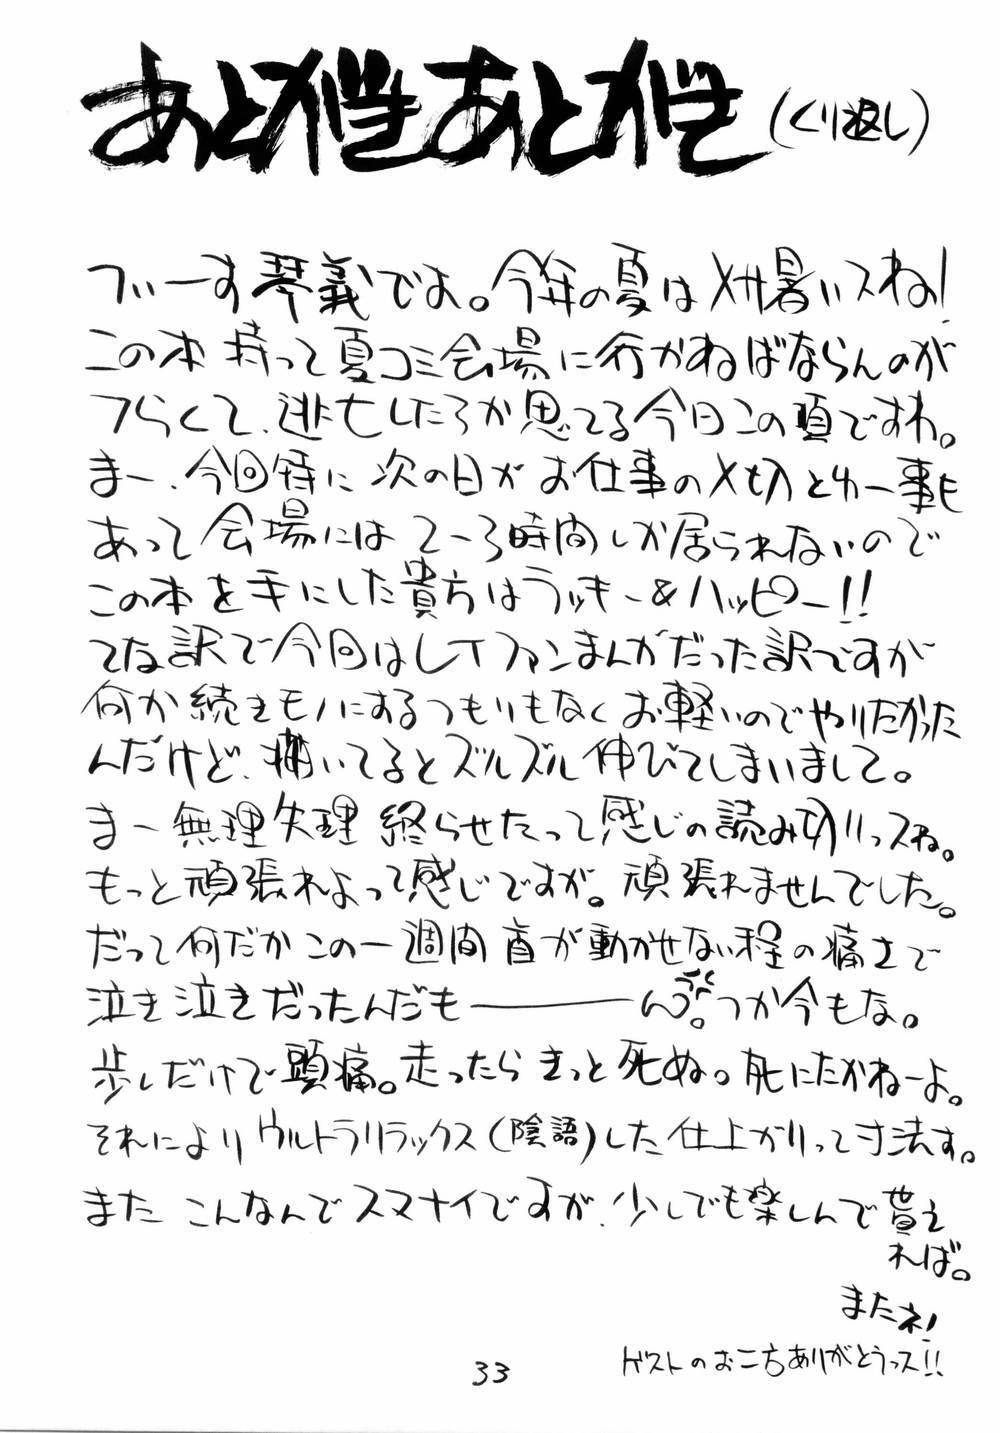 あとがきあとがき(くり返し)
づぃーす琴義でよ。今年の夏はメサ暑いスね!
この本持って夏コミ会場に行かねばならんのが
つらくて、逃亡したろか思てる今日この頃ですわ。
まー、今回特に次の日がお仕事の〆切とゆー事も
あって会場には2〜3時間しか居られないので
この本を手にした貴方はラッキー&ハッピー!!
てな訳で今回はLTファンまんがだった訳ですが
何か続きモノにするつもりもなくお軽いのでやりたかった
んだけど、描いてるとズルズル伸びてしまいまして。
まー無理失理終らせたって感じの読み切りっスね。
もっと頑張れよって感じですが。頑張れませんでした。
だって何だかこの一週間首が動かせない程の痛さで
泣き泣きだったんだも――――ん。つか今もな。
歩しだけで頭痛。走ったらきっと死ぬ。死にたかねーよ。
それによりウルトラリラックス(陰語)した仕上がりって寸法す。
またこんなんでスマナイですが、少しでも楽しんで貰え
れば。
またネ!
ゲストのお二方ありがとうっス!!
33